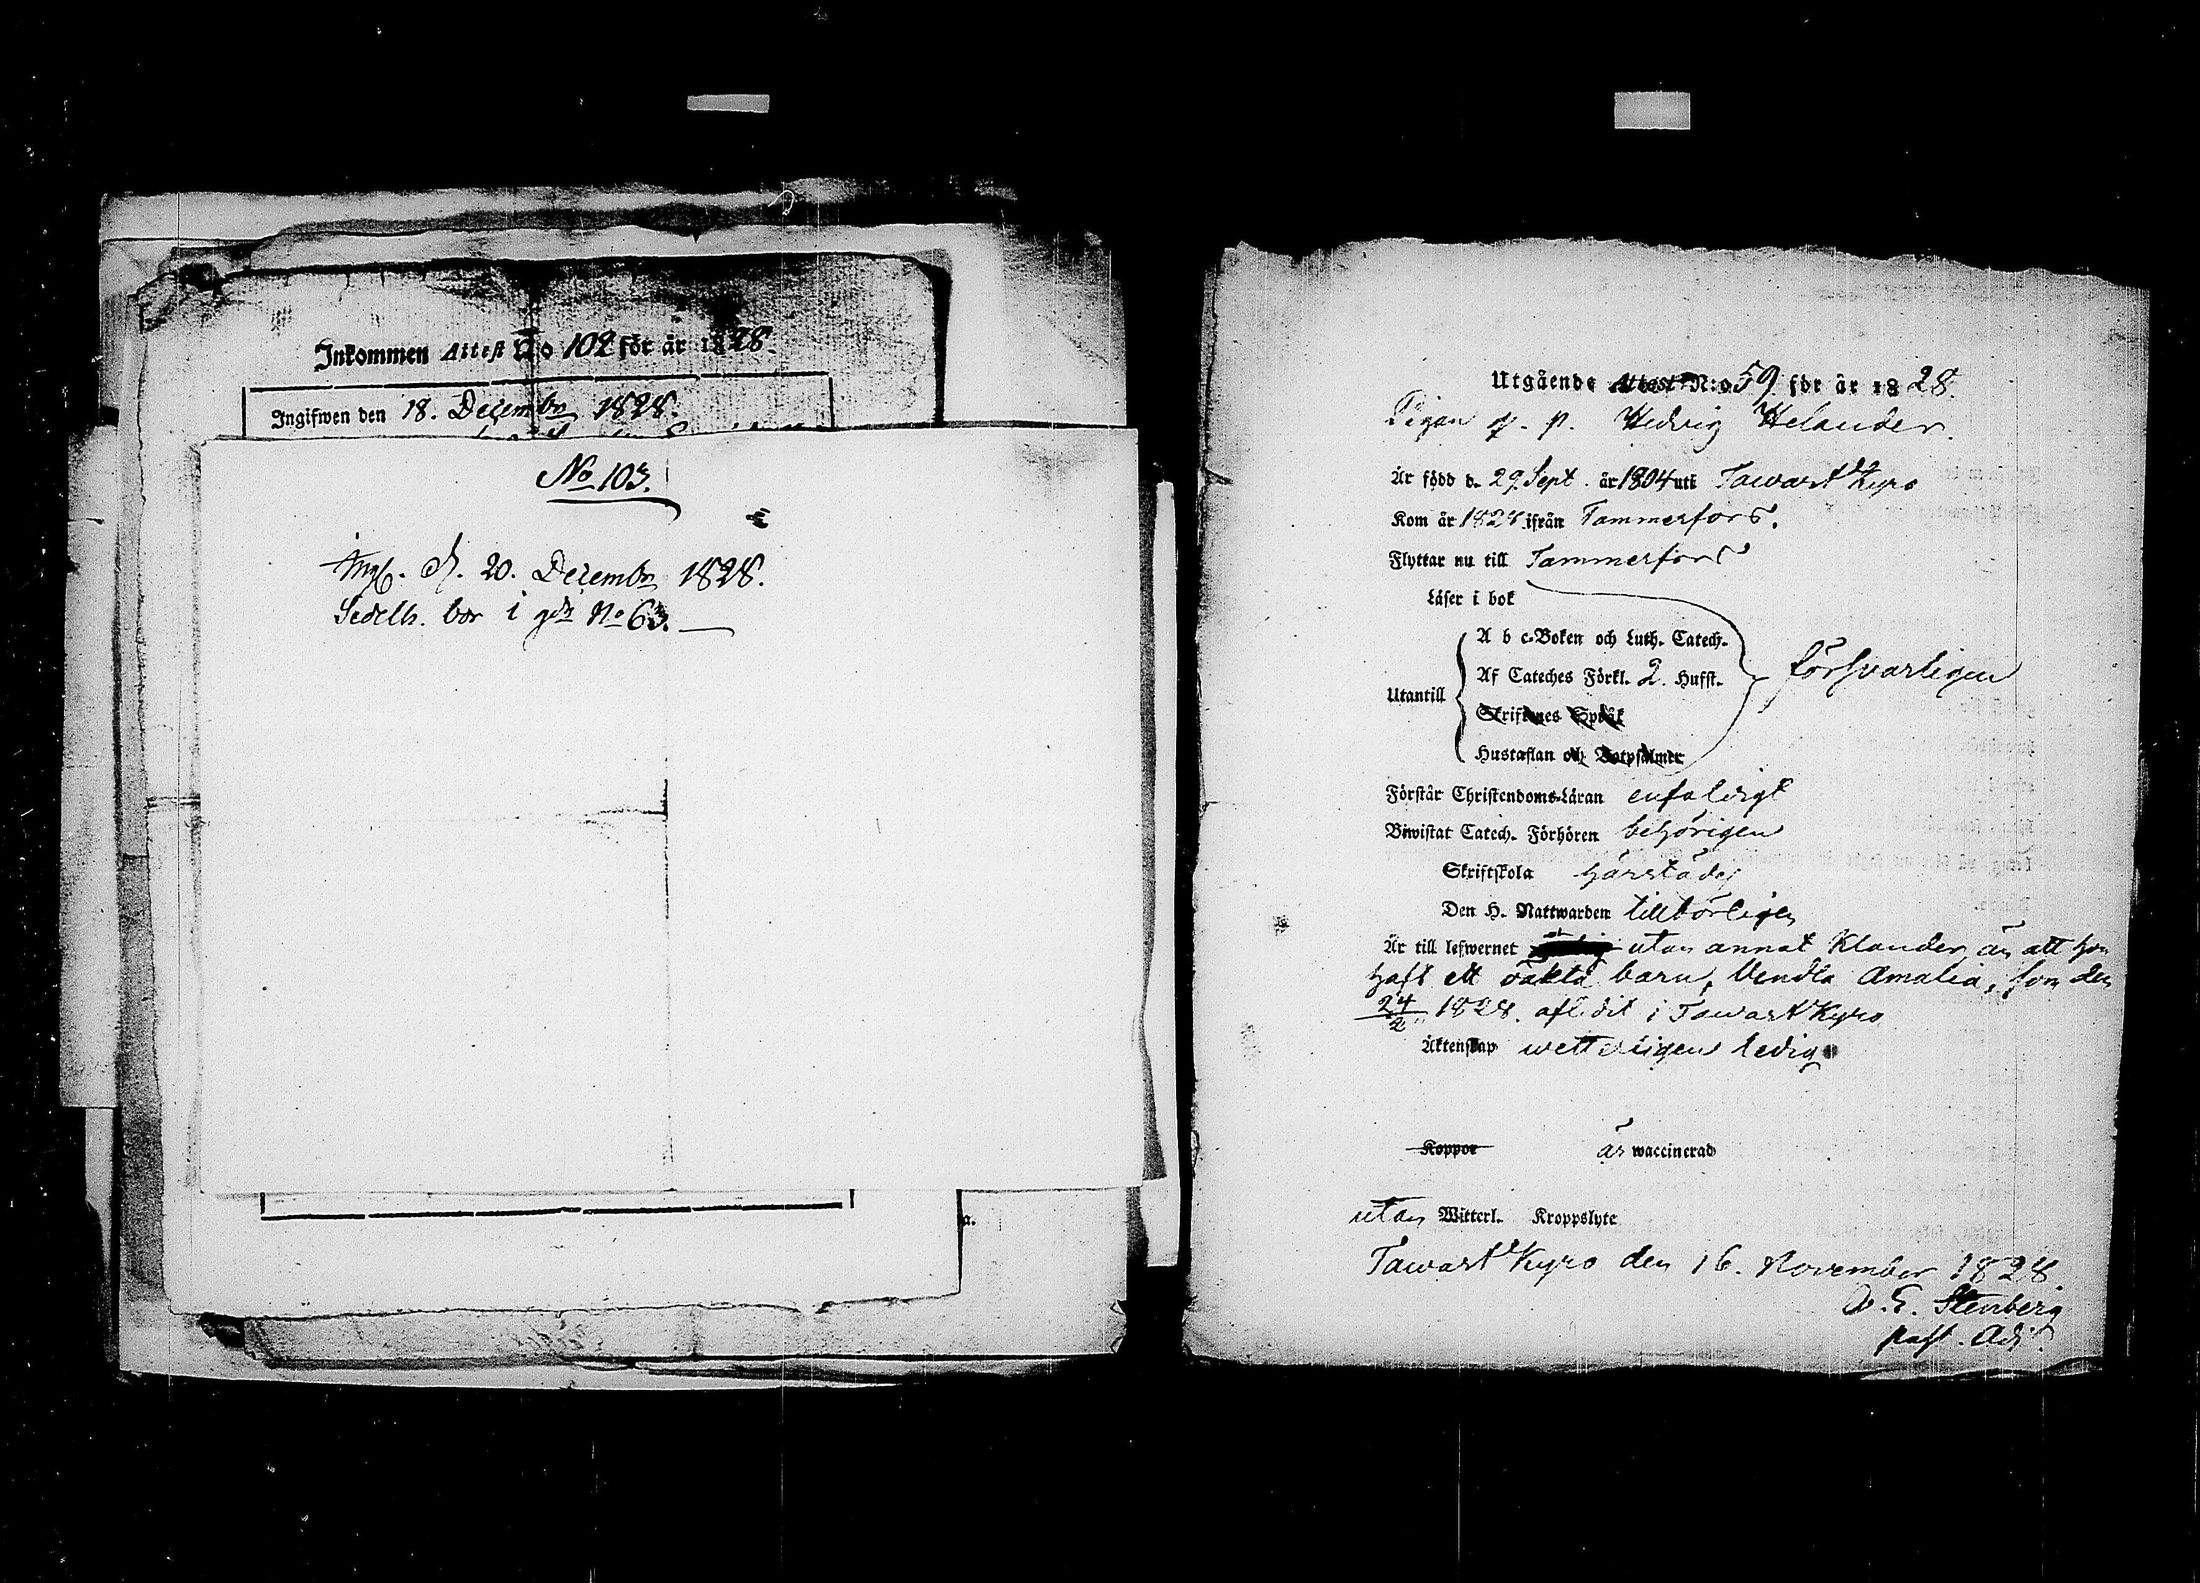 Inkommen Attest No 102 för år 1828.
Ingifwen den 18. Decembr 1828.
No 103.
Ing. d. 20. Decembr 1828.
Sedelh. bor i gdn No 63.
Utgående Attest N:o 59. för år 1828.
Pigan q. p. Hedvig Helander.
Är född d. 29. Sept. år 1804 uti Tawastkyro
Kom år 1828 ifrån Tammerfors.
Flyttar nu till Tammerfors
Läser i bok
A b c-Boken och Luth. Catech.
Af Cateches Förkl. 2. Hufst.
försvarligen
Utantill
Skriftenes Språk
Hustaflan och Botpsalmer
Förstår Christendoms-Läran enfaldigt
Biwistat Catech. Förhören behörigen
Skriftskola härstädes
Den H. Nattwarden tillbörligen
Är till lefwernet utan annat klander än att hon
haft ett oäkta barn, Vendla Amalia, som den
24/2 1828. aflidit i Tawastkyro
Äktenskap wetterligen ledig
Koppor är waccinerad
utan Witterl. Kroppslyte
Tawastkyro den 16. November 1828.
Stenberg
past. Adj.
a.